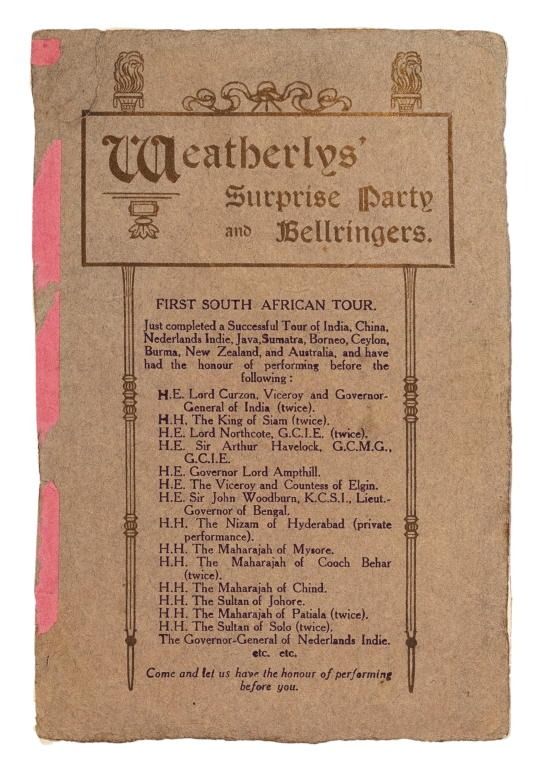 Weatherlys'
Surprise Party
and Bellringers.
FIRST SOUTH AFRICAN TOUR.
Just completed a Successful Tour of India, China,
Nederlands Indie, Java, Sumatra, Borneo, Ceylon,
Burma, New Zealand, and Australia, and have
had the honour of performing before the
following :
H.E. Lord Curzon, Viceroy and Governor-
General of India (twice).
H.H. The King of Siam (twice).
H.E. Lord Northcote, G.C.I.E. (twice).
H.E. Sir Arthur Havelock, G.C.M.G.,
G.C.I.E.
H.E. Governor Lord Ampthill.
H.E. The Viceroy and Countess of Elgin.
H.E. Sir John Woodburn, K.C.S.I., Lieut.-
Governor of Bengal.
H.H. The Nizam of Hyderabad (private
performance).
H.H. The Maharajah of Mysore.
H.H. The Maharajah of Cooch Behar
(twice).
H.H. The Maharajah of Chind.
H.H. The Sultan of Johore.
H.H. The Maharajah of Patiala (twice).
H.H. The Sultan of Solo (twice).
The Governor-General of Nederlands Indie.
etc. etc.
Come and let us have the honour of performing
before you.